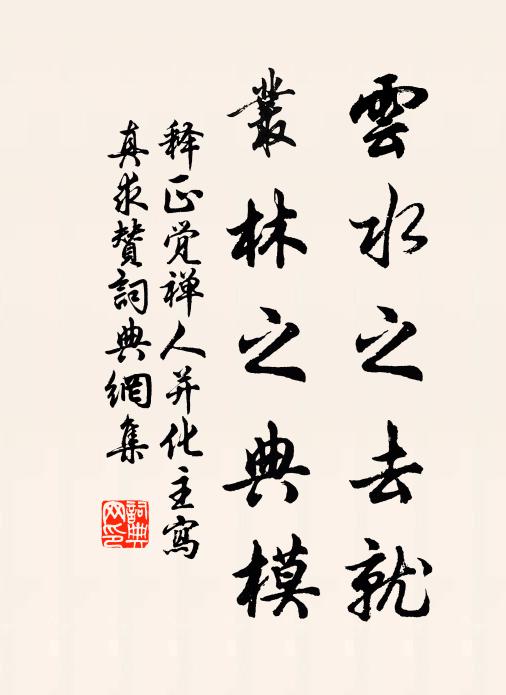 雲水之去就
叢林之典模
释正覚禅人并化主寫
真求賛詞典網集
詞典网印